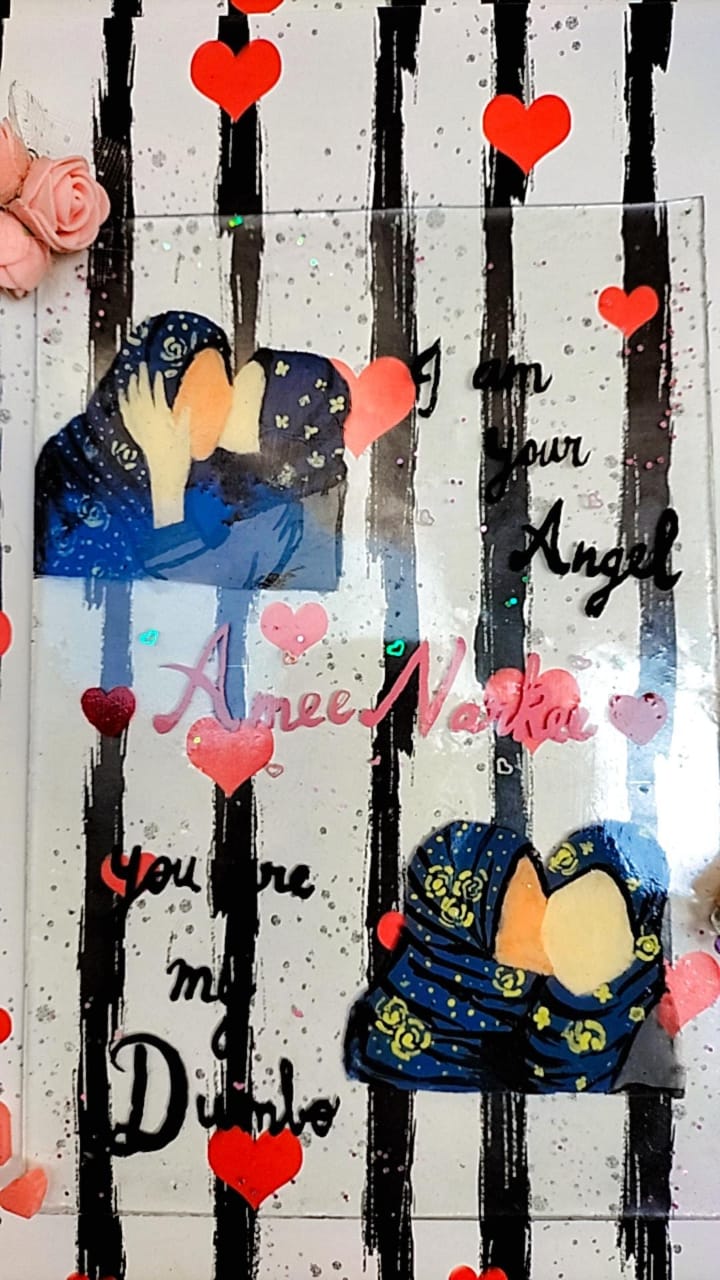 I am
your
Angel
Amee Narkee
you are
my
Dumbo